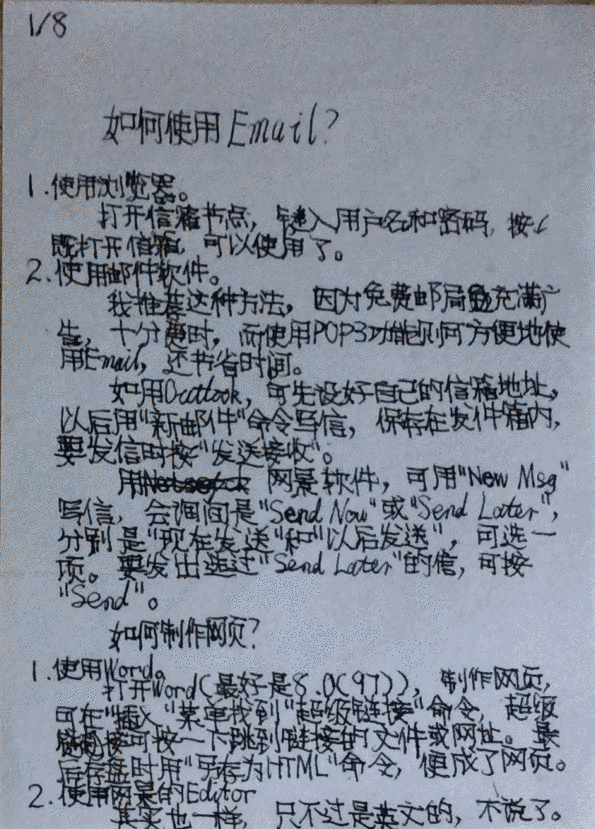 1/8
如何使用Email?
1.使用浏览器。
打开信箱节点，键入用户名和密码，按
既打开信箱，可以使用了。
2.使用邮件软件。
我推荐这种方法，因为免费邮局充满广
告，十分费时，而使用POP3功能则可方便地使
用Email，还节省时间。
如用Outlook，可先设好自己的信箱地址。
以后用"新邮件"命令写信，保存在发件箱内，
要发信时按"发送接收"。
用 网景软件，可用"New Msg"
写信，会询问是"Send Now"或"Send Later"，
分别是"现在发送"和"以后发送"，可选一
项。要发出选过"Send Later"的信，可按
"Send"。
如何制作网页?
1.使用Word。
打开Word(最好是8.0(97))，制作网页，
可在"插入"菜单找到"超级链接"命令，超级
链接可按一下跳到链接的文件或网址。最
后存盘时用"另存为HTML"命令，便成了网页。
2.使用网景的Editor
其实也一样，只不过是英文的，不说了。